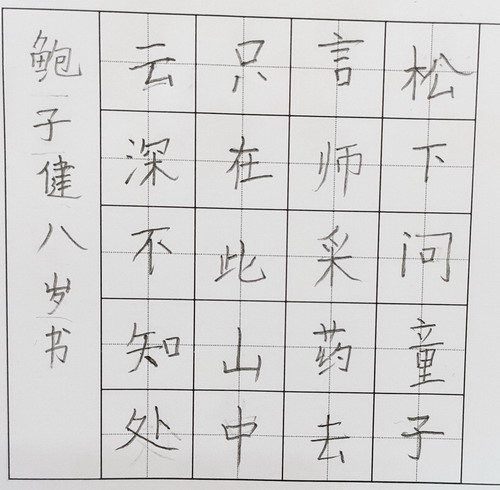 松下问童子
言师采药去
只在此山中
云深不知处
鲍子健八岁书